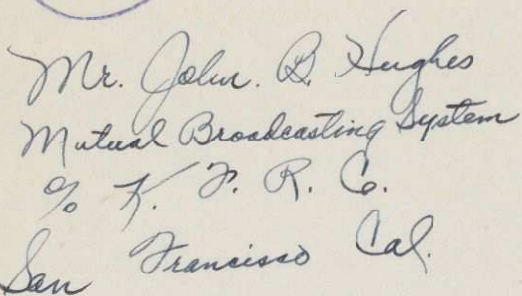 Mr. John. B. Hughes
Mutual Broadcasting System
% K. F. R. C.
San Francisco Cal.